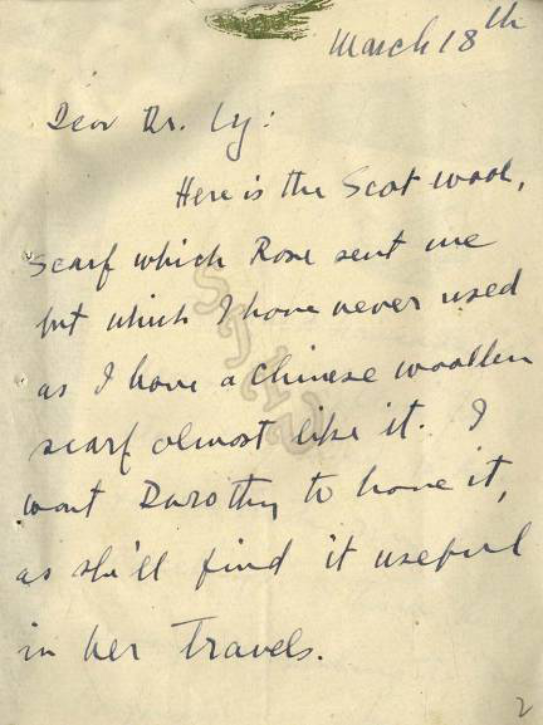 March 18th
Dear Dr. Ly:
Here is the Scot wool,
scarf which Rose sent me
but which I have never used
as I have a Chinese woollen
scarf almost like it. I
want Dorothy to have it,
as she'll find it useful
in her Travels.
2